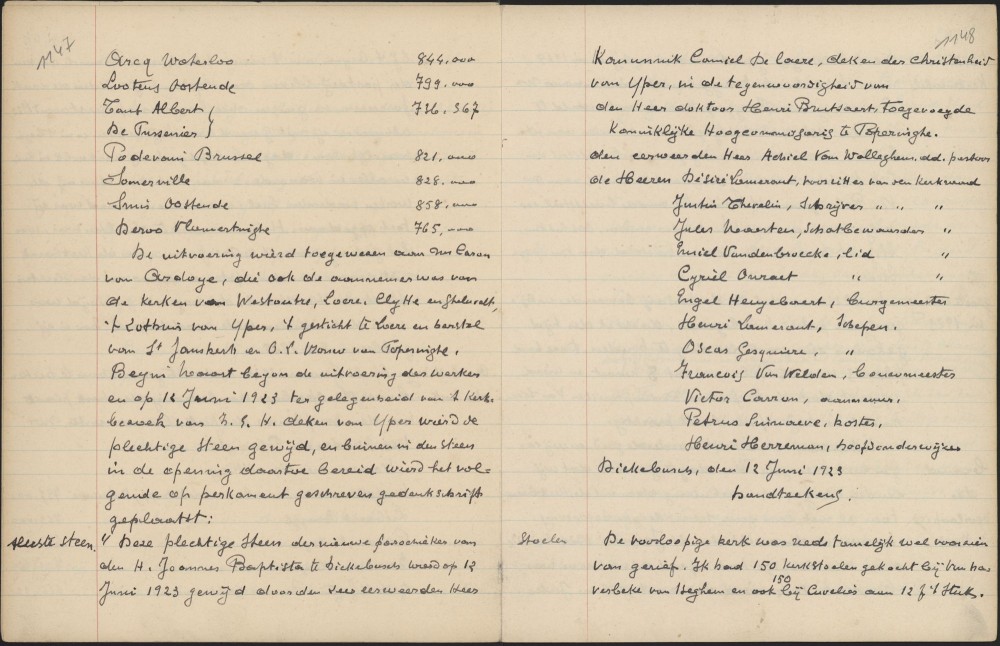 1147
Arcq Waterloo 844.000
Lootens Oostende 799.000
Tant Albert }
De Tussenier } 736.367
Padevani Brussel 821.000
Somerville 828.000
Smis Oostende 858.000
Dervo Vlamertinghe 765.000
De uitvoering wierd toegewezen aan Mr Caron
van Ardoye, die ook de aannemer was van
de kerken van Westoutre, Loere, Clytte en Gheluvelt,
't Kothuis van Yper, 't gesticht te Loere en herstel
van St Janskerk en O.L. Vrouw van Poperinghe.
Begin Maart begon de uitvoering der werken
en op 12 Juni 1923 ter gelegenheid van 't kerk-
bezoek van Z. E. H. deken van Yper wierd de
plechtige steen gewijd, en binnen in den steen
in de opening daartoe bereid wierd het vol-
gende op perkament geschreven gedenkschrift
geplaatst:
eerste steen. " Deze plechtige steen der nieuwe parochiekerk van
den H. Joannes Baptista te Dickebusch werd op 12
Juni 1923 gewijd door den zeer eerweerden Heer
1148
Kanunnik Camiel De Laere, deken der Christenheid
van Yper, in de tegenwoordigheid van
den Heer doktoor Henri Brutsaert, toegevoegde
Koninklijke Hoogcommissaris te Poperinghe.
den eerweerden Heer Achiel Van Walleghem, dd. pastoor
de Heeren Désiré Lamerant, voorzitter van den kerkraad
Justin Thevelin, schrijver " " "
Jules Maerten, schatbewaarder "
Emiel Vandenbroecke, lid "
Cyriel Onraet " "
Engel Heugebaert, burgemeester
Henri Lamerant, schepen.
Oscar Gesquiere, "
François Van Welden, bouwmeester
Victor Carron, aannemer,
Petrus Suinaeve, koster,
Henri Herreman, hoofdonderwijzer
Dickebusch, den 12 Juni 1923
handteekens.
Stoelen De voorloopige kerk was reeds tamelijk wel voorzien
van gerief. Ik had 150 kerkstoelen gekocht bij
verbeke van Iseghem en ook 150 bij Cuvelier aan 12 f 't stuk.